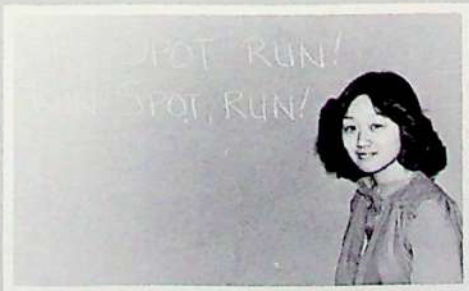 SPOT RUN!
SPOT, RUN!